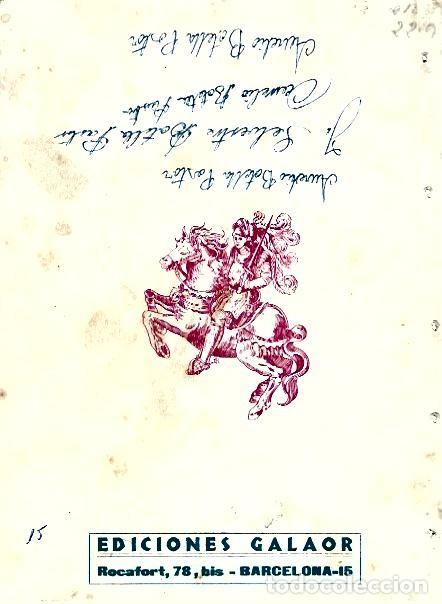 Aurelio Botella Pastor
Aurelio Botella Pastor
Silvestre Botella Pastor
Aurelio Botella Pastor
15
EDICIONES GALAOR
Rocafort, 78, bis - BARCELONA-15
todocoleccion